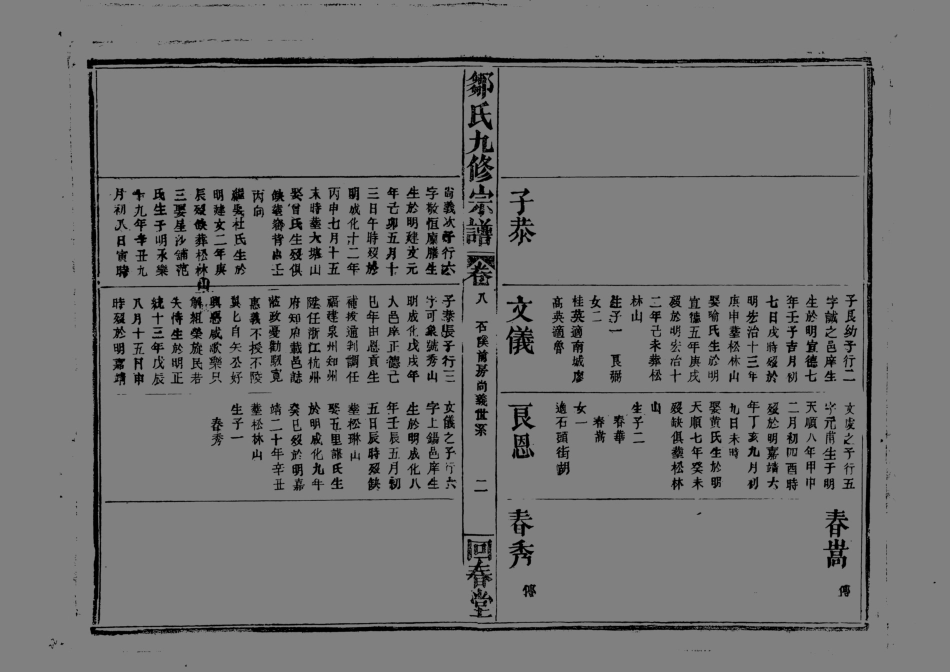 子恭
子良幼子行二
字誠之邑庠生
生於明宣德七
年壬子吉月初
七日戌時歿於
明宏治十三年
庚申葬松林山
娶喻氏生於明
宣德五年庚戌
歿於明宏治十
二年己未葬松
林山
生子一 良弼
女二
桂英適南城廖
高英適魯
文儀
文虔之子行五
字元甫生于明
天順八年甲申
二月初四酉時
歿於明嘉靖六
年丁亥九月初
九日未時
娶黃氏生於明
天順七年癸未
歿缺俱葬松林
山
生子二
春華
春嵩
女一
適石頭街胡
良恩
春嵩 傳
春秀 傳
鄒氏九修宗譜 卷八 石溪前房尚義世系 二 回春堂
尚義次子行六
字敬恒廩膳生
生於明建文元
年己卯五月十
三日午時歿於
明成化十二年
丙申七月十五
未時葬大塘山
娶曾氏生歿俱
缺葬
丙向
繼娶杜氏生於
明建文二年庚
辰歿缺葬松林山
三娶星沙鋪范
氏生于明永樂
十九年辛丑九
月初八日寅時
子恭長子行三
字可象號秀山
明成化戊戌年
入邑庠正德己
巳年由恩貢生
補授通判調任
福建泉州知州
陞任浙江杭州
府知府載邑誌
蒞政憂勤馭寬
惠義不授不陵
冀匕自矢公好
與惡咸歌樂只
解組榮旋民若
失恃生於明正
統十三年戊辰
八月十五日申
時歿於明嘉靖
文儀之子行六
字上錫邑庠生
生於明成化八
年壬辰五月初
五日辰時歿缺
葬松琳山
娶五里譙氏生
於明成化九年
癸巳歿於明嘉
靖二十年辛丑
葬松林山
生子一
春秀